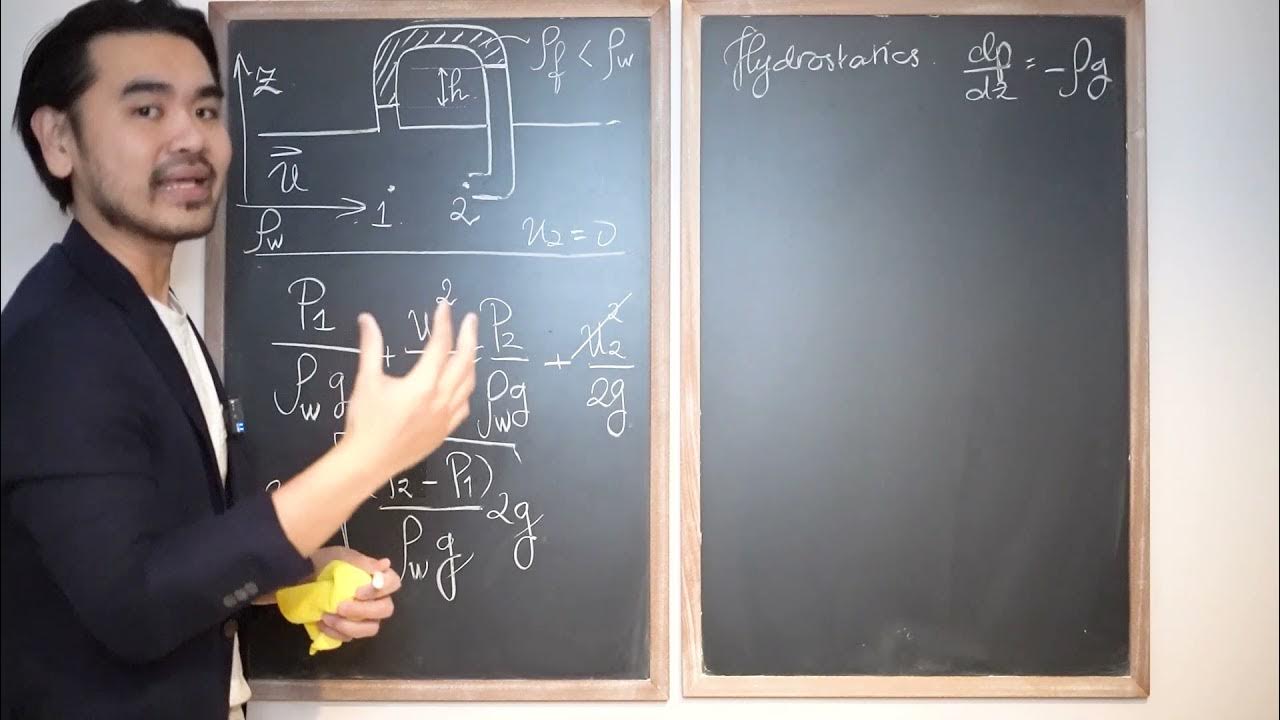 z
h
ρf < ρw
u⃗
1
2
ρw
u₂ = 0
P₁/ρw g + u²/ = P₂/ρw g + u₂²/2g
(P₂ - P₁)/ρw g 2g
Hydrostatics. dp/dz = -ρg